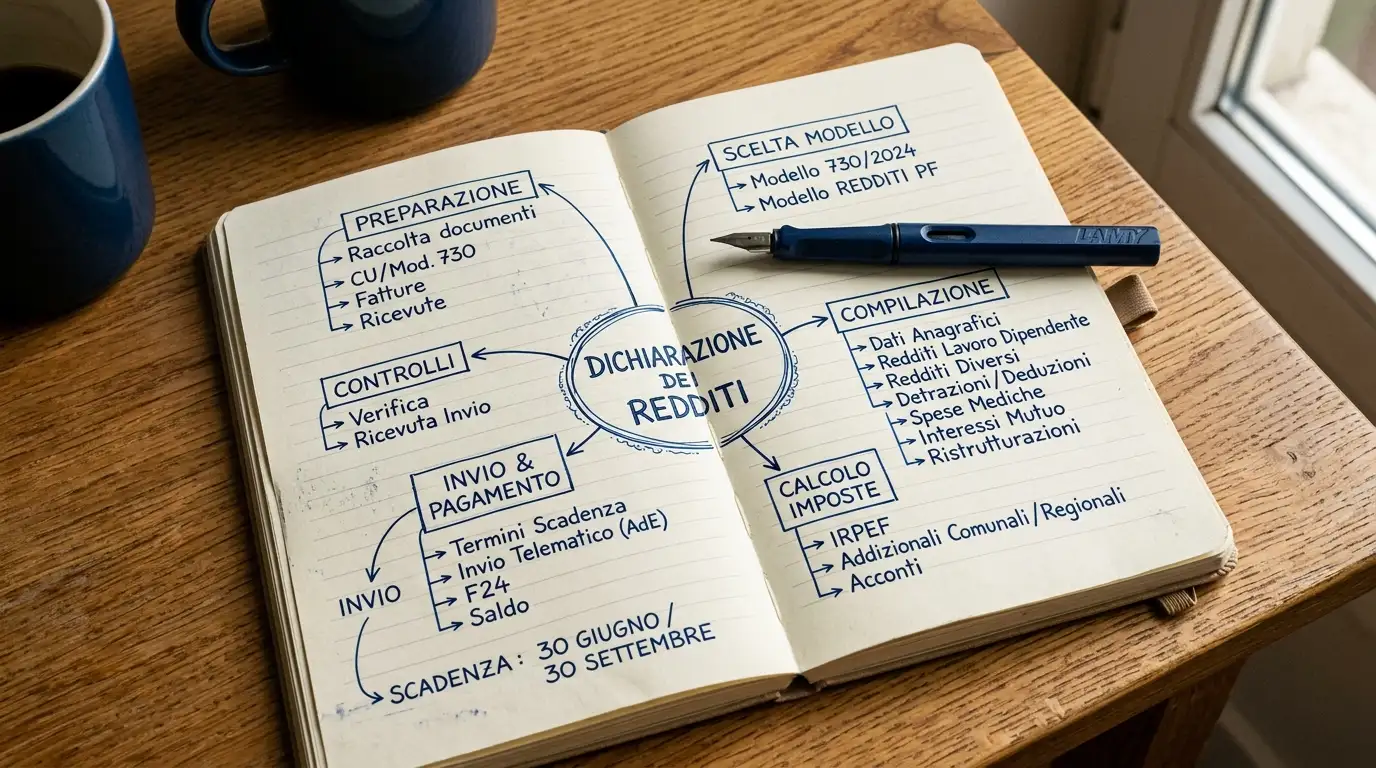 PREPARAZIONE
Raccolta documenti
CU/Mod. 730
Fatture
Ricevute
CONTROLLI
Verifica
Ricevuta Invio
INVIO &
PAGAMENTO
Termini Scadenza
Invio Telematico (AdE)
F24
Saldo
INVIO
SCADENZA: 30 GIUGNO /
30 SETTEMBRE
DICHIARAZIONE
DEI
REDDITI
SCELTA MODELLO
Modello 730/2024
Modello REDDITI PF
LAMY
COMPILAZIONE
Dati Anagrafici
Redditi Lavoro Dipendente
Redditi Diversi
Detrazioni/Deduzioni
Spese Mediche
Interessi Mutuo
Ristrutturazioni
CALCOLO
IMPOSTE
IRPEF
Addizionali Comunali/Regionali
Acconti